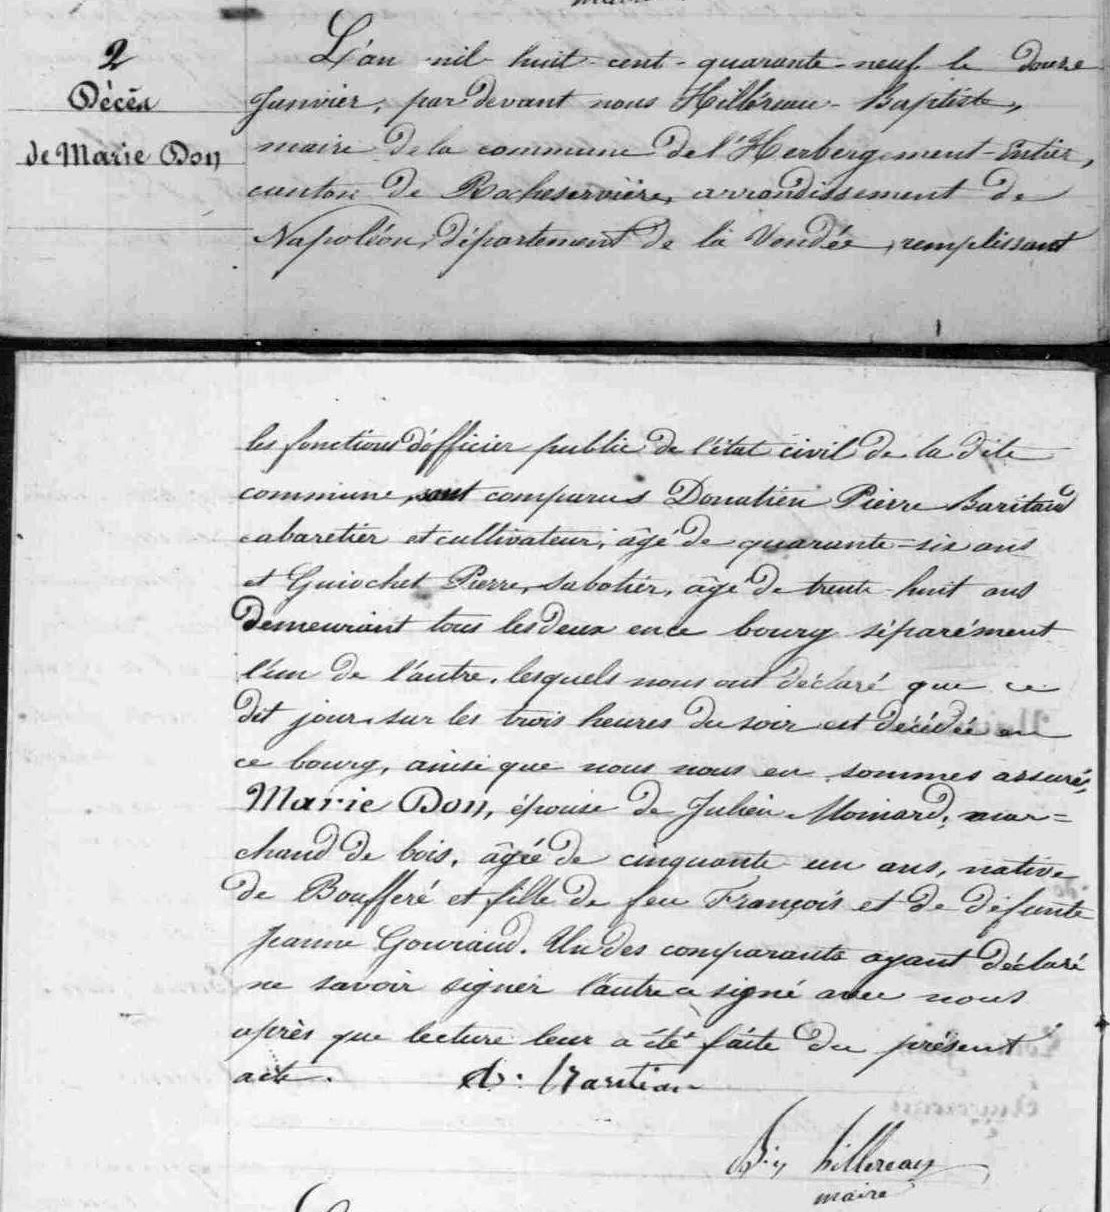 maire
2
Décès
de Marie Don
L'an mil huit-cent-quarante-neuf le douze
Janvier, par devant nous Hillereau-Baptiste,
maire de la commune de l'Herbergement-Entier,
canton de Rocheservière, arrondissement de
Napoléon, département de la Vendée, remplissant
les fonctions d'officier public de l'état civil de la dite
commune, sont comparus Donatien Pierre Baritaud
cabaretier et cultivateur, âgé de quarante-six ans
et Guiochet Pierre, sabotier, âgé de trente-huit ans
demeurant tous les deux en ce bourg séparément
l'un de l'autre, lesquels nous ont déclaré que ce
dit jour sur les trois heures du soir est décédée en
ce bourg, ainsi que nous nous en sommes assurés,
Marie Don, épouse de Julien Moinard, mar=
chand de bois, âgée de cinquante un ans, native
de Boufferé et fille de feu François et de défunte
Jeanne Gouraud. Un des comparants ayant déclaré
ne savoir signer l'autre a signé avec nous
après que lecture leur a été faite du présent
acte.
hillereau
maire